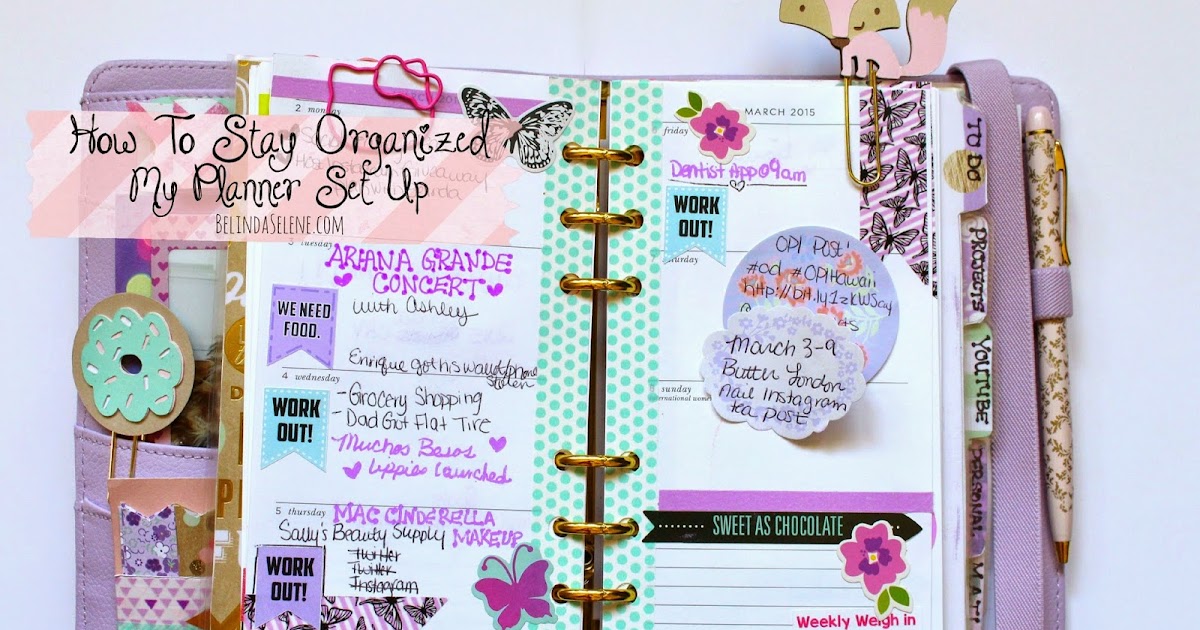 How To Stay Organized
My Planner Set Up
BelindaSelene.com
2 monday
3 tuesday
ARIANA GRANDE
CONCERT
with Ashley
WE NEED
FOOD.
Enrique got his wallet/phone
stolen
4 wednesday
-Grocery Shopping
-Dad Got Flat Tire
WORK
OUT!
Muchos Besos
Lippies Launched
5 thursday
MAC CINDERELLA
MAKEUP
Sally's Beauty Supply
Twitter
Twitter
Instagram
WORK
OUT!
MARCH 2015
friday
Dentist App@9am
WORK
OUT!
saturday
OPI Post!
#ad #OPIHawaii
http://bit.ly/1zkWScy
March 3-9
Butter London
nail Instagram
tea post
sunday
SWEET AS CHOCOLATE
Weekly Weigh in
TO DO
PROJECTS
YOUTUBE
PERSONAL